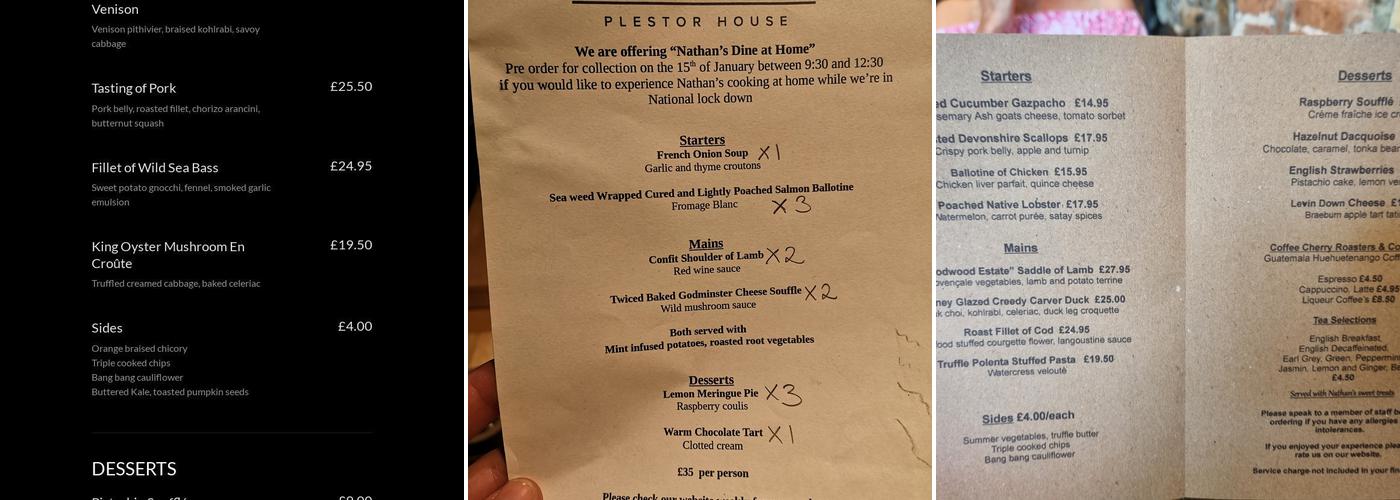 Venison
Venison pithivier, braised kohlrabi, savoy
cabbage
Tasting of Pork £25.50
Pork belly, roasted fillet, chorizo arancini,
butternut squash
Fillet of Wild Sea Bass £24.95
Sweet potato gnocchi, fennel, smoked garlic
emulsion
King Oyster Mushroom En £19.50
Croûte
Truffled creamed cabbage, baked celeriac
Sides £4.00
Orange braised chicory
Triple cooked chips
Bang bang cauliflower
Buttered Kale, toasted pumpkin seeds
DESSERTS
PLESTOR HOUSE
We are offering “Nathan’s Dine at Home”
Pre order for collection on the 15th of January between 9:30 and 12:30
if you would like to experience Nathan’s cooking at home while we’re in
National lock down
Starters
French Onion Soup X1
Garlic and thyme croutons
Sea weed Wrapped Cured and Lightly Poached Salmon Ballotine
Fromage Blanc X3
Mains
Confit Shoulder of Lamb X2
Red wine sauce
Twiced Baked Godminster Cheese Souffle X2
Wild mushroom sauce
Both served with
Mint infused potatoes, roasted root vegetables
Desserts
Lemon Meringue Pie X3
Raspberry coulis
Warm Chocolate Tart X1
Clotted cream
£35 per person
Please check our website
Starters
Cucumber Gazpacho £14.95
Ash goats cheese, tomato sorbet
Devonshire Scallops £17.95
Crispy pork belly, apple and turnip
Ballotine of Chicken £15.95
Chicken liver parfait, quince cheese
Poached Native Lobster £17.95
Watermelon, carrot purée, satay spices
Mains
Estate” Saddle of Lamb £27.95
vegetables, lamb and potato terrine
Glazed Creedy Carver Duck £25.00
choi, kohlrabi, celeriac, duck leg croquette
Roast Fillet of Cod £24.95
stuffed courgette flower, langoustine sauce
Truffle Polenta Stuffed Pasta £19.50
Watercress velouté
Sides £4.00/each
Summer vegetables, truffle butter
Triple cooked chips
Bang bang cauliflower
Desserts
Raspberry Soufflé
Crème fraîche ice
Hazelnut Dacquoise
Chocolate, caramel, tonka
English Strawberries
Pistachio cake, lemon
Levin Down Cheese
Braeburn apple tart
Coffee Cherry Roasters &
Guatemala Huehuetenango
Espresso £4.50
Cappuccino, Latte £4.95
Liqueur Coffee’s £8.50
Tea Selections
English Breakfast,
English Decaffeinated,
Earl Grey, Green,
Jasmin, Lemon and Ginger,
£4.50
Served with Nathan’s sweet treats
Please speak to a member of staff
ordering if you have any allergies
intolerances.
If you enjoyed your experience
rate us on our website.
Service charge not included in your